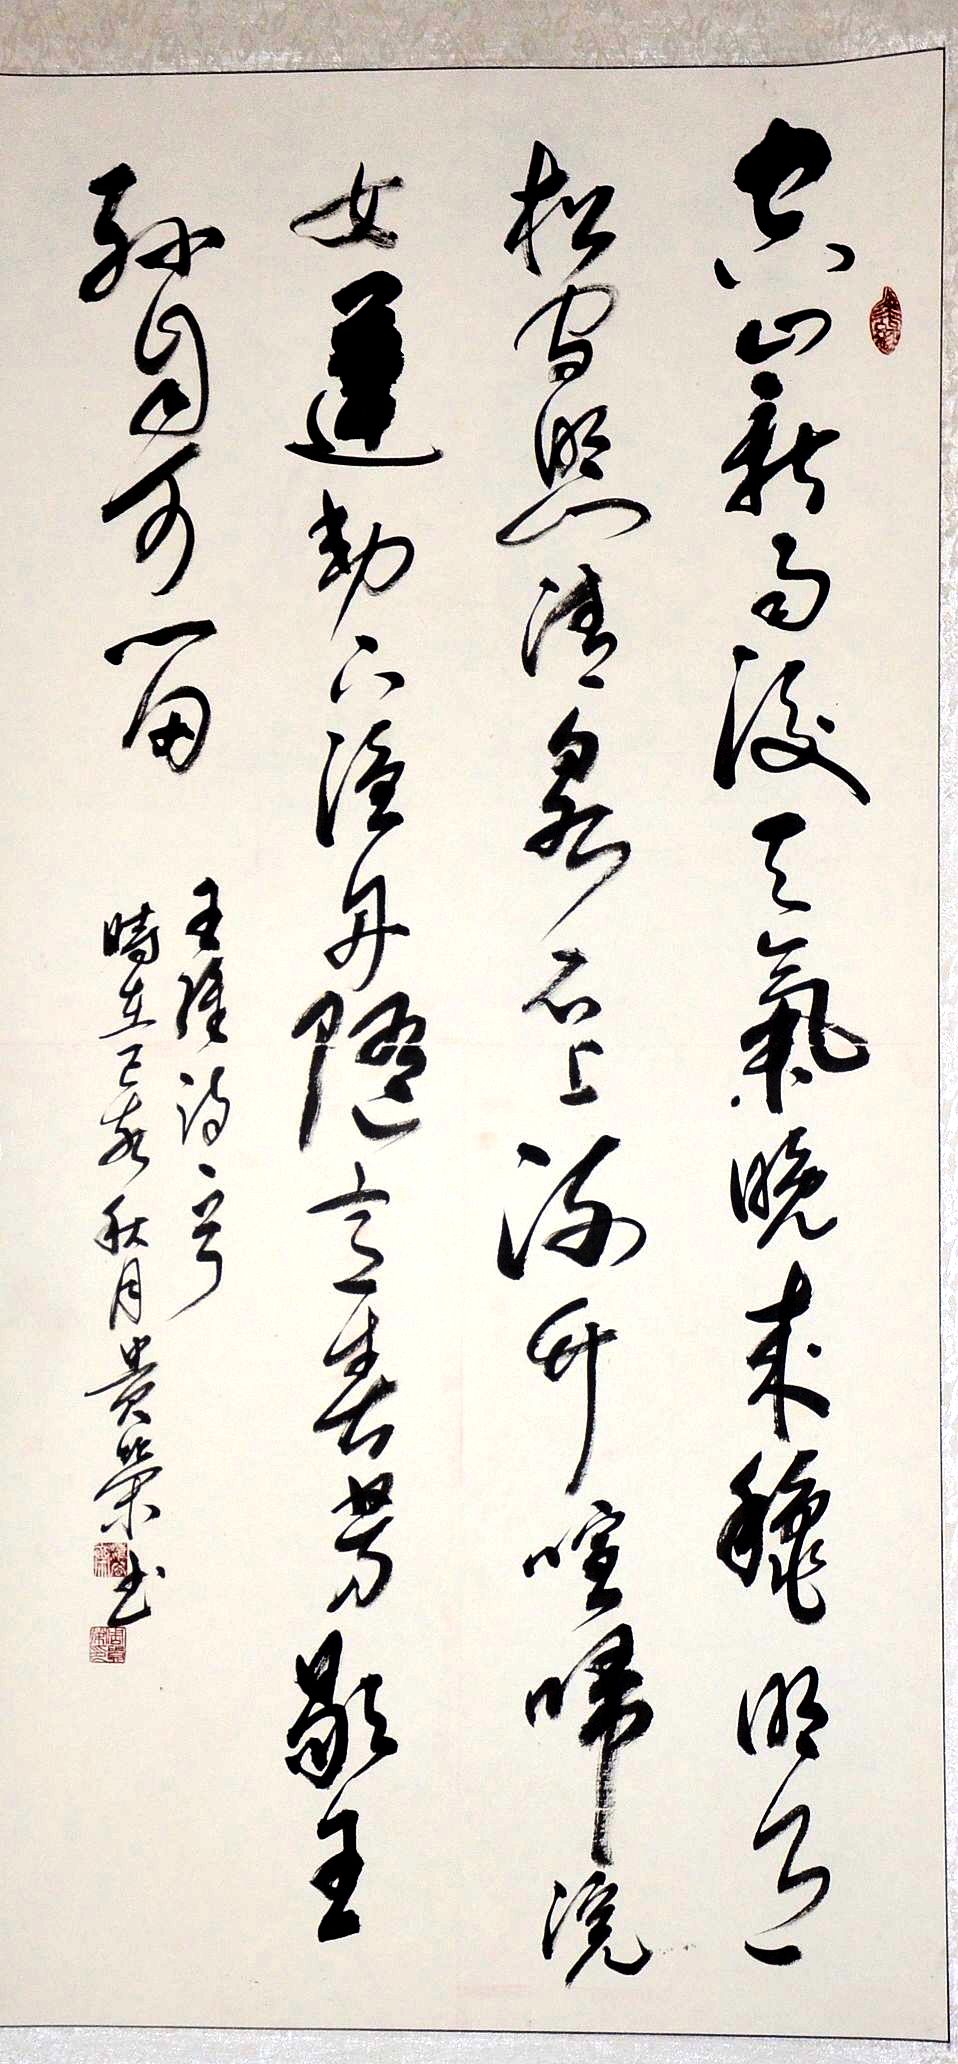 空山新雨後天氣晚來龝明月
松間照清泉石上流竹喧歸浣
女蓮動下漁舟隨意春芳歇王
孫自可留
王維詩一首
時在己亥秋月貴榮书